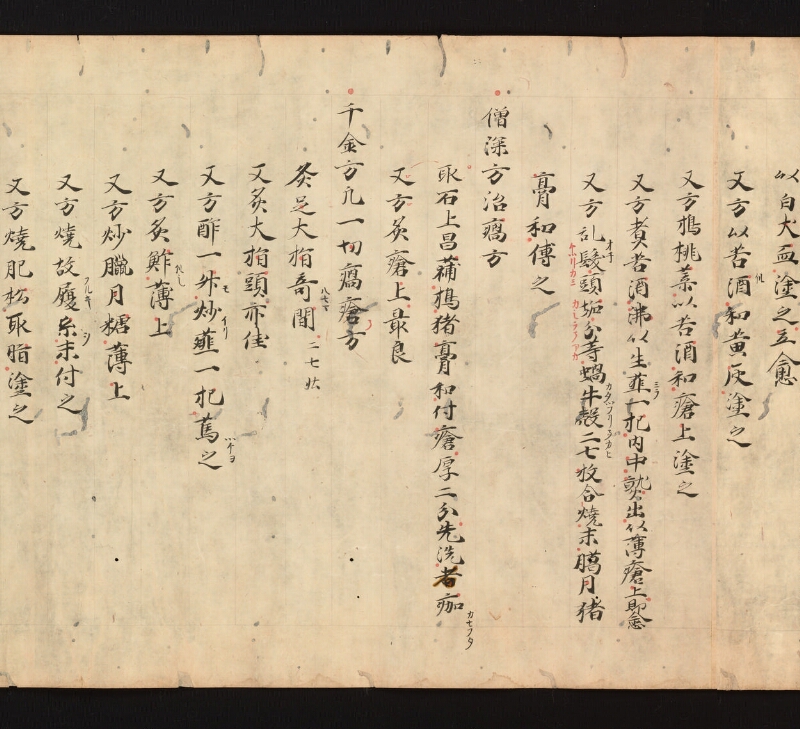 以白犬血塗之立愈
又方以苦酒和黄灰塗之
又方搗桃葉以苦酒和瘡上塗之
又方煮苦酒沸以生韮一把内中熟出以薄瘡上即愈
又方乱髪頭垢分等蝸牛殻二七枚合燒末臈月猪
膏和傅之
僧深方治瘑方
取石上昌蒲搗猪膏和付瘡厚二分先洗者痂
又方灸瘡上最良
千金方凢一切瘑瘡方
灸足大指奇間二七壮
又灸大指頭亦佳
又方酢一升炒薤一把蔫之
又方炙鮓薄上
又方炒臘月糖薄上
又方燒故履糸末付之
又方燒肥松取脂塗之